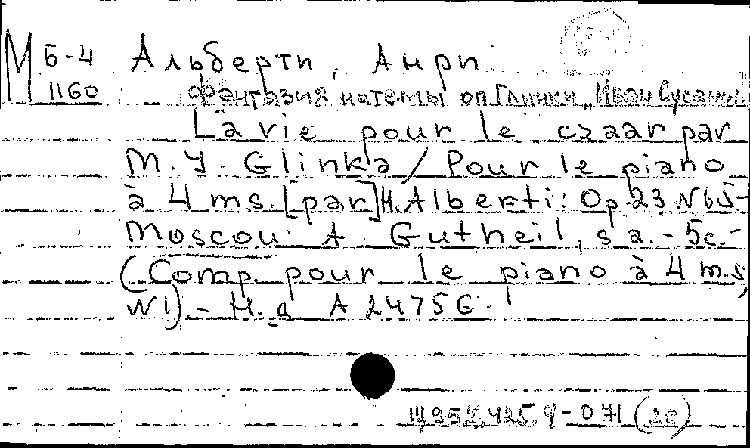 М Б-4
1160
Альберти, Анри
Фантазия на темы оп. Глинки "Иван Сусанин"
La vie pour le czaar par
M. J. Glinka / Pour le piano
à 4 ms. [par] H. Alberti: Op. 23 N 65-
Moscou: A. Gutheil, s a. - 5c.-
(Comp. pour le piano à 4 m.s,
N 1) - Н. д A 2475 G.